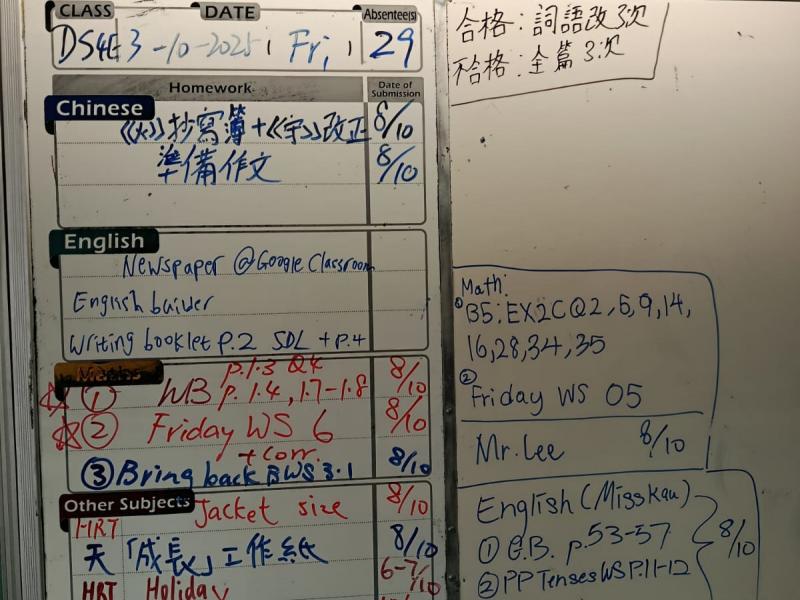 CLASS DATE Absentee(s)
DS4E 3-10-2025 ( Fri, ) 29
Homework Date of Submission
Chinese
《火》抄寫簿+《字》改正 8/10
準備作文 8/10
English
Newspaper @Google Classroom
English builder
Writing booklet p.2 SDL + p.4
Maths
p.1.3 Q4
☆① WB p. 1.4, 1.7-1.8 8/10
☆② Friday WS 6 8/10
+ corr.
③ Bring back BWS 3.1 8/10
Other Subjects
HRT Jacket size 8/10
天「成長」工作紙 8/10
HRT Holiday 6-7/10
合格：詞語改3次
不合格：全篇3次
Math:
① B5: EX2C Q2, 6, 9, 14,
16, 28, 34, 35
② Friday WS 05
Mr. Lee 8/10
English (Miss Kau)
① G.B. p.53-57 8/10
② PP Tenses WS P.11-12